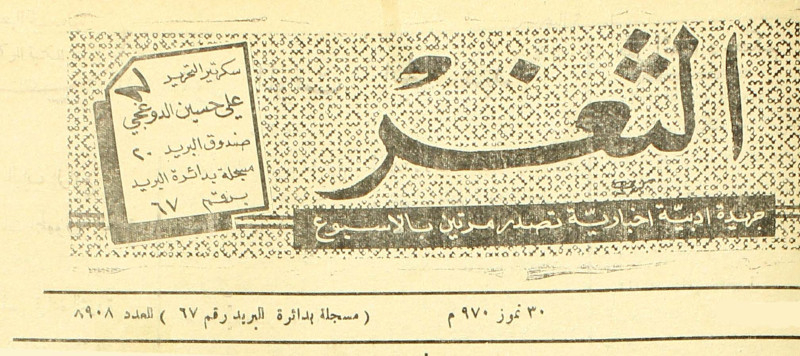 الثغر
جريدة ادبية اخبارية تصدر مرتين بالاسبوع
سكرتير التحرير
علي حسين الدوغجي
صندوق البريد ٢٠
مسجلة بدائرة البريد
برقم ٦٧
٣٠ تموز ٩٧٠ م ( مسجلة بدائرة البريد رقم ٦٧ ) العدد ٨٩٠٨